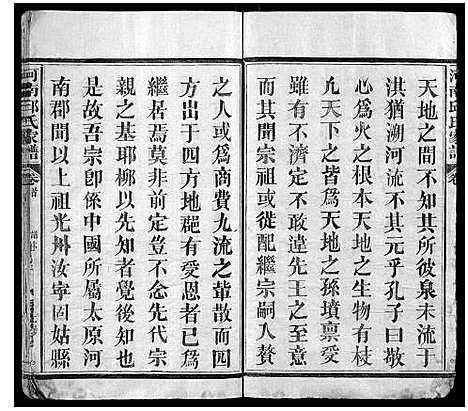 天地之間不知所從彼泉未流于
洪猶溯河流於其元乎孔子曰敬
心為火之根本天之生物有枝
凢天下之皆為天地之孫墳禀愛
尊卑之定不敢違先王之至意
而其開宗祖或從配繼宗嗣入贅
之人或為商費九流之輩散而四
方出于四方地皅有愛恩者已為
繼居焉莫非前定豈不念先代宗
親之基耶柳以先知者覺後知也
是故吾宗卽係中國所屬太原河
南郡間以上祖光州汝寧固姑縣
河南邱氏家譜 卷首